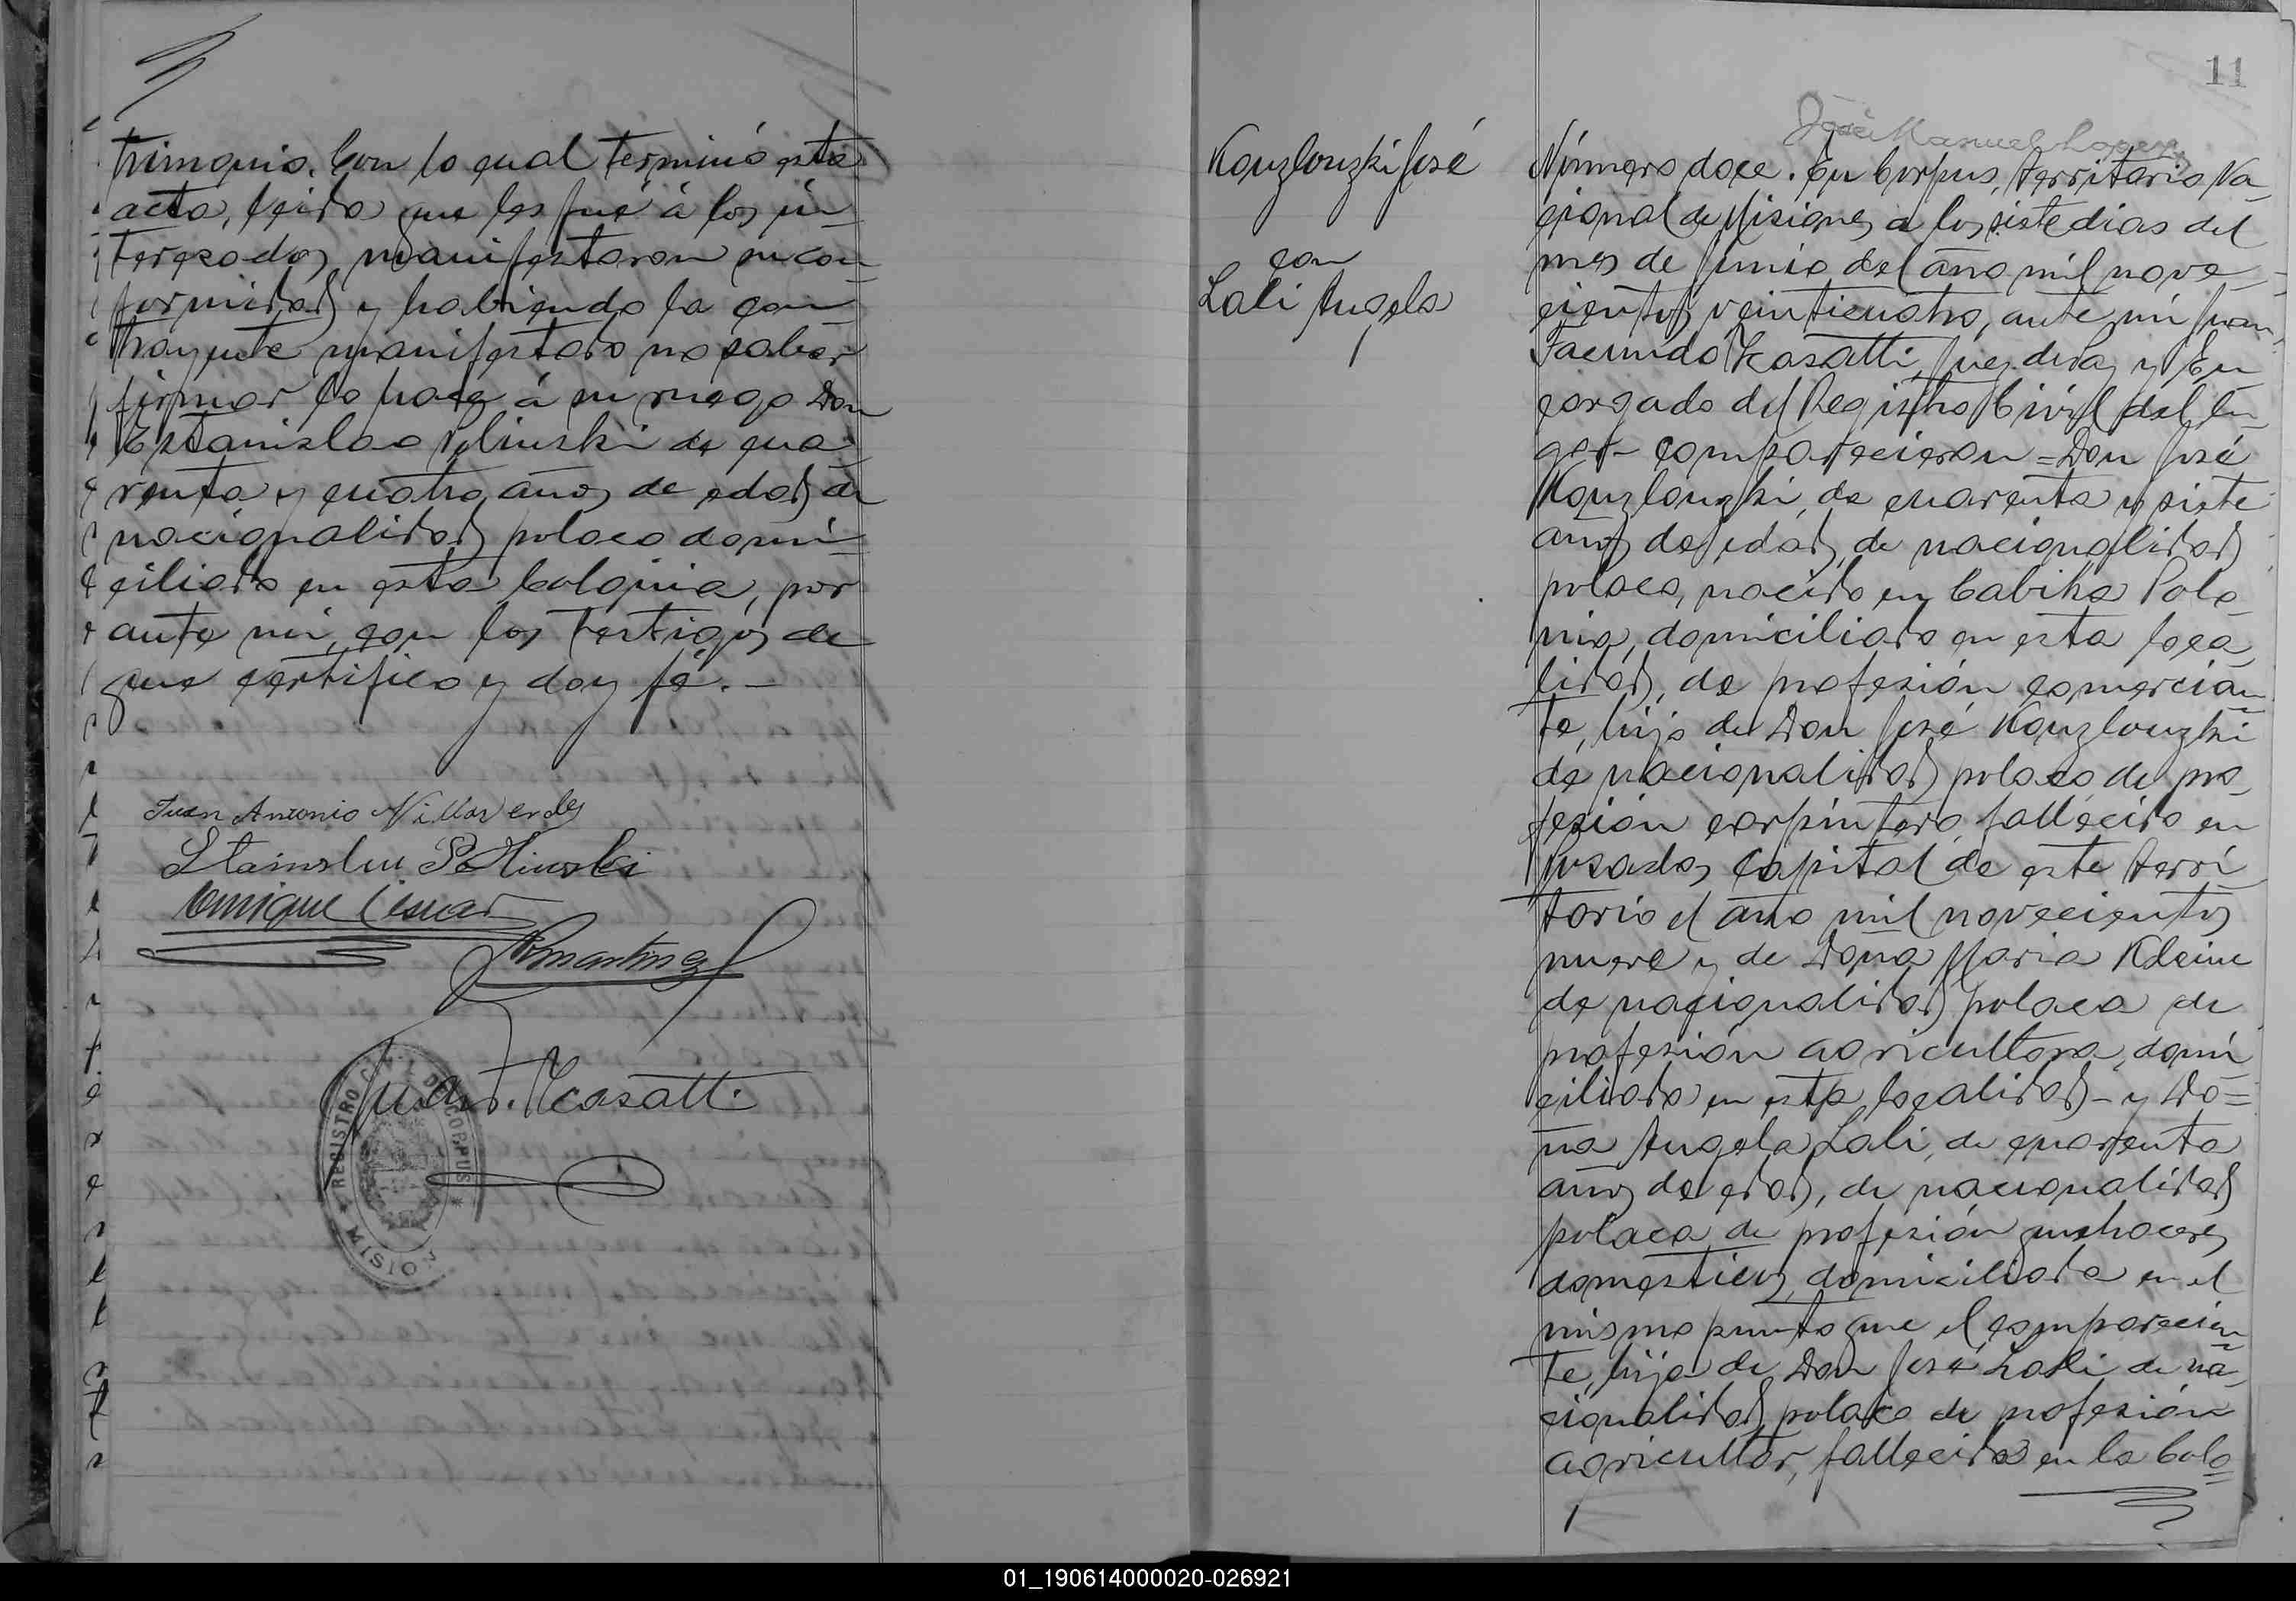 trimonio. Con lo cual terminó esta
acta, leida que les fué á los in-
teresados, manifestaron su con-
formidad y habiendo la con-
trayente manifestado no saber
firmar lo hace á su ruego Don
Estanislao Polinski de cua-
renta y cuatro años de edad de
nacionalidad polaca domi-
ciliado en esta Colonia, por
ante mi, con los testigos de
que certifico y doy fé.-
Juan Antonio Villaverdes
Stainslau Polinski
Enrique
Martinez
Juan F. Casatti
REGISTRO CIVIL DE CORPUS
* MISIONES *
11
José Manuel Lopez
Kouzlouzki José
con
Lali Angela
Número doce. En Corpus, territorio Na-
cional de Misiones a los siete dias del
mes de Junio del año mil nove-
cientos veinticuatro, ante mi Juan
Facundo Casatti, Juez de Paz y En
cargado del Registro Civil del lu-
gar- comparecieron = Don José
Kouzlouzki, de cuarenta y siete
años de edad, de nacionalidad
polaca, nacido en Polo
nia, domiciliado en esta loca
lidad, de profesión comercian
te, hijo de Don José Kouzlouzki
de nacionalidad polaca de pro
fesión carpintero, fallecido en
Posadas, Capital de este terri
torio el año mil novecientos
nueve y de Doña Maria Kleine
de nacionalidad polaca de
profesión agricultora, domi
ciliada en esta localidad- y Do=
ña Angela Lali, de cuarenta
años de edad, de nacionalidad
polaca de profesión quehaceres
domesticos, domiciliada en el
mismo punto que el comparecien
te, hija de Don José Lali de na
cionalidad polaca de profesión
agricultor, fallecido en la Colo=
01_190614000020-026921